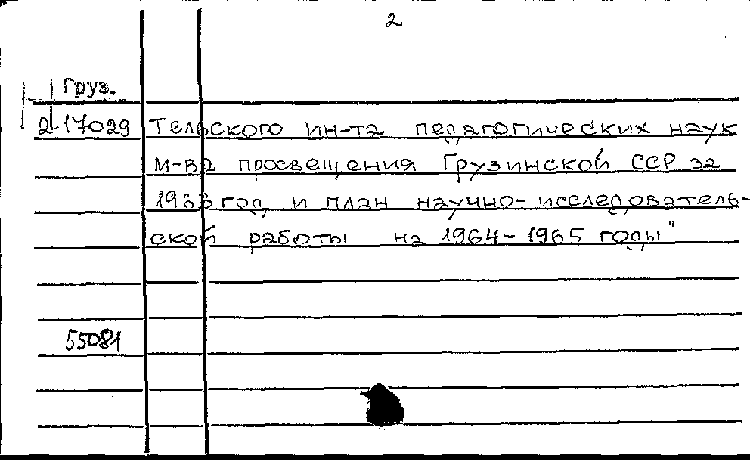 2
Груз.
2-17029 тельского ин-та педагогических наук
м-ва просвещения Грузинской ССР за
1963 год и план научно-исследователь-
ской работы на 1964-1965 годы"
55081